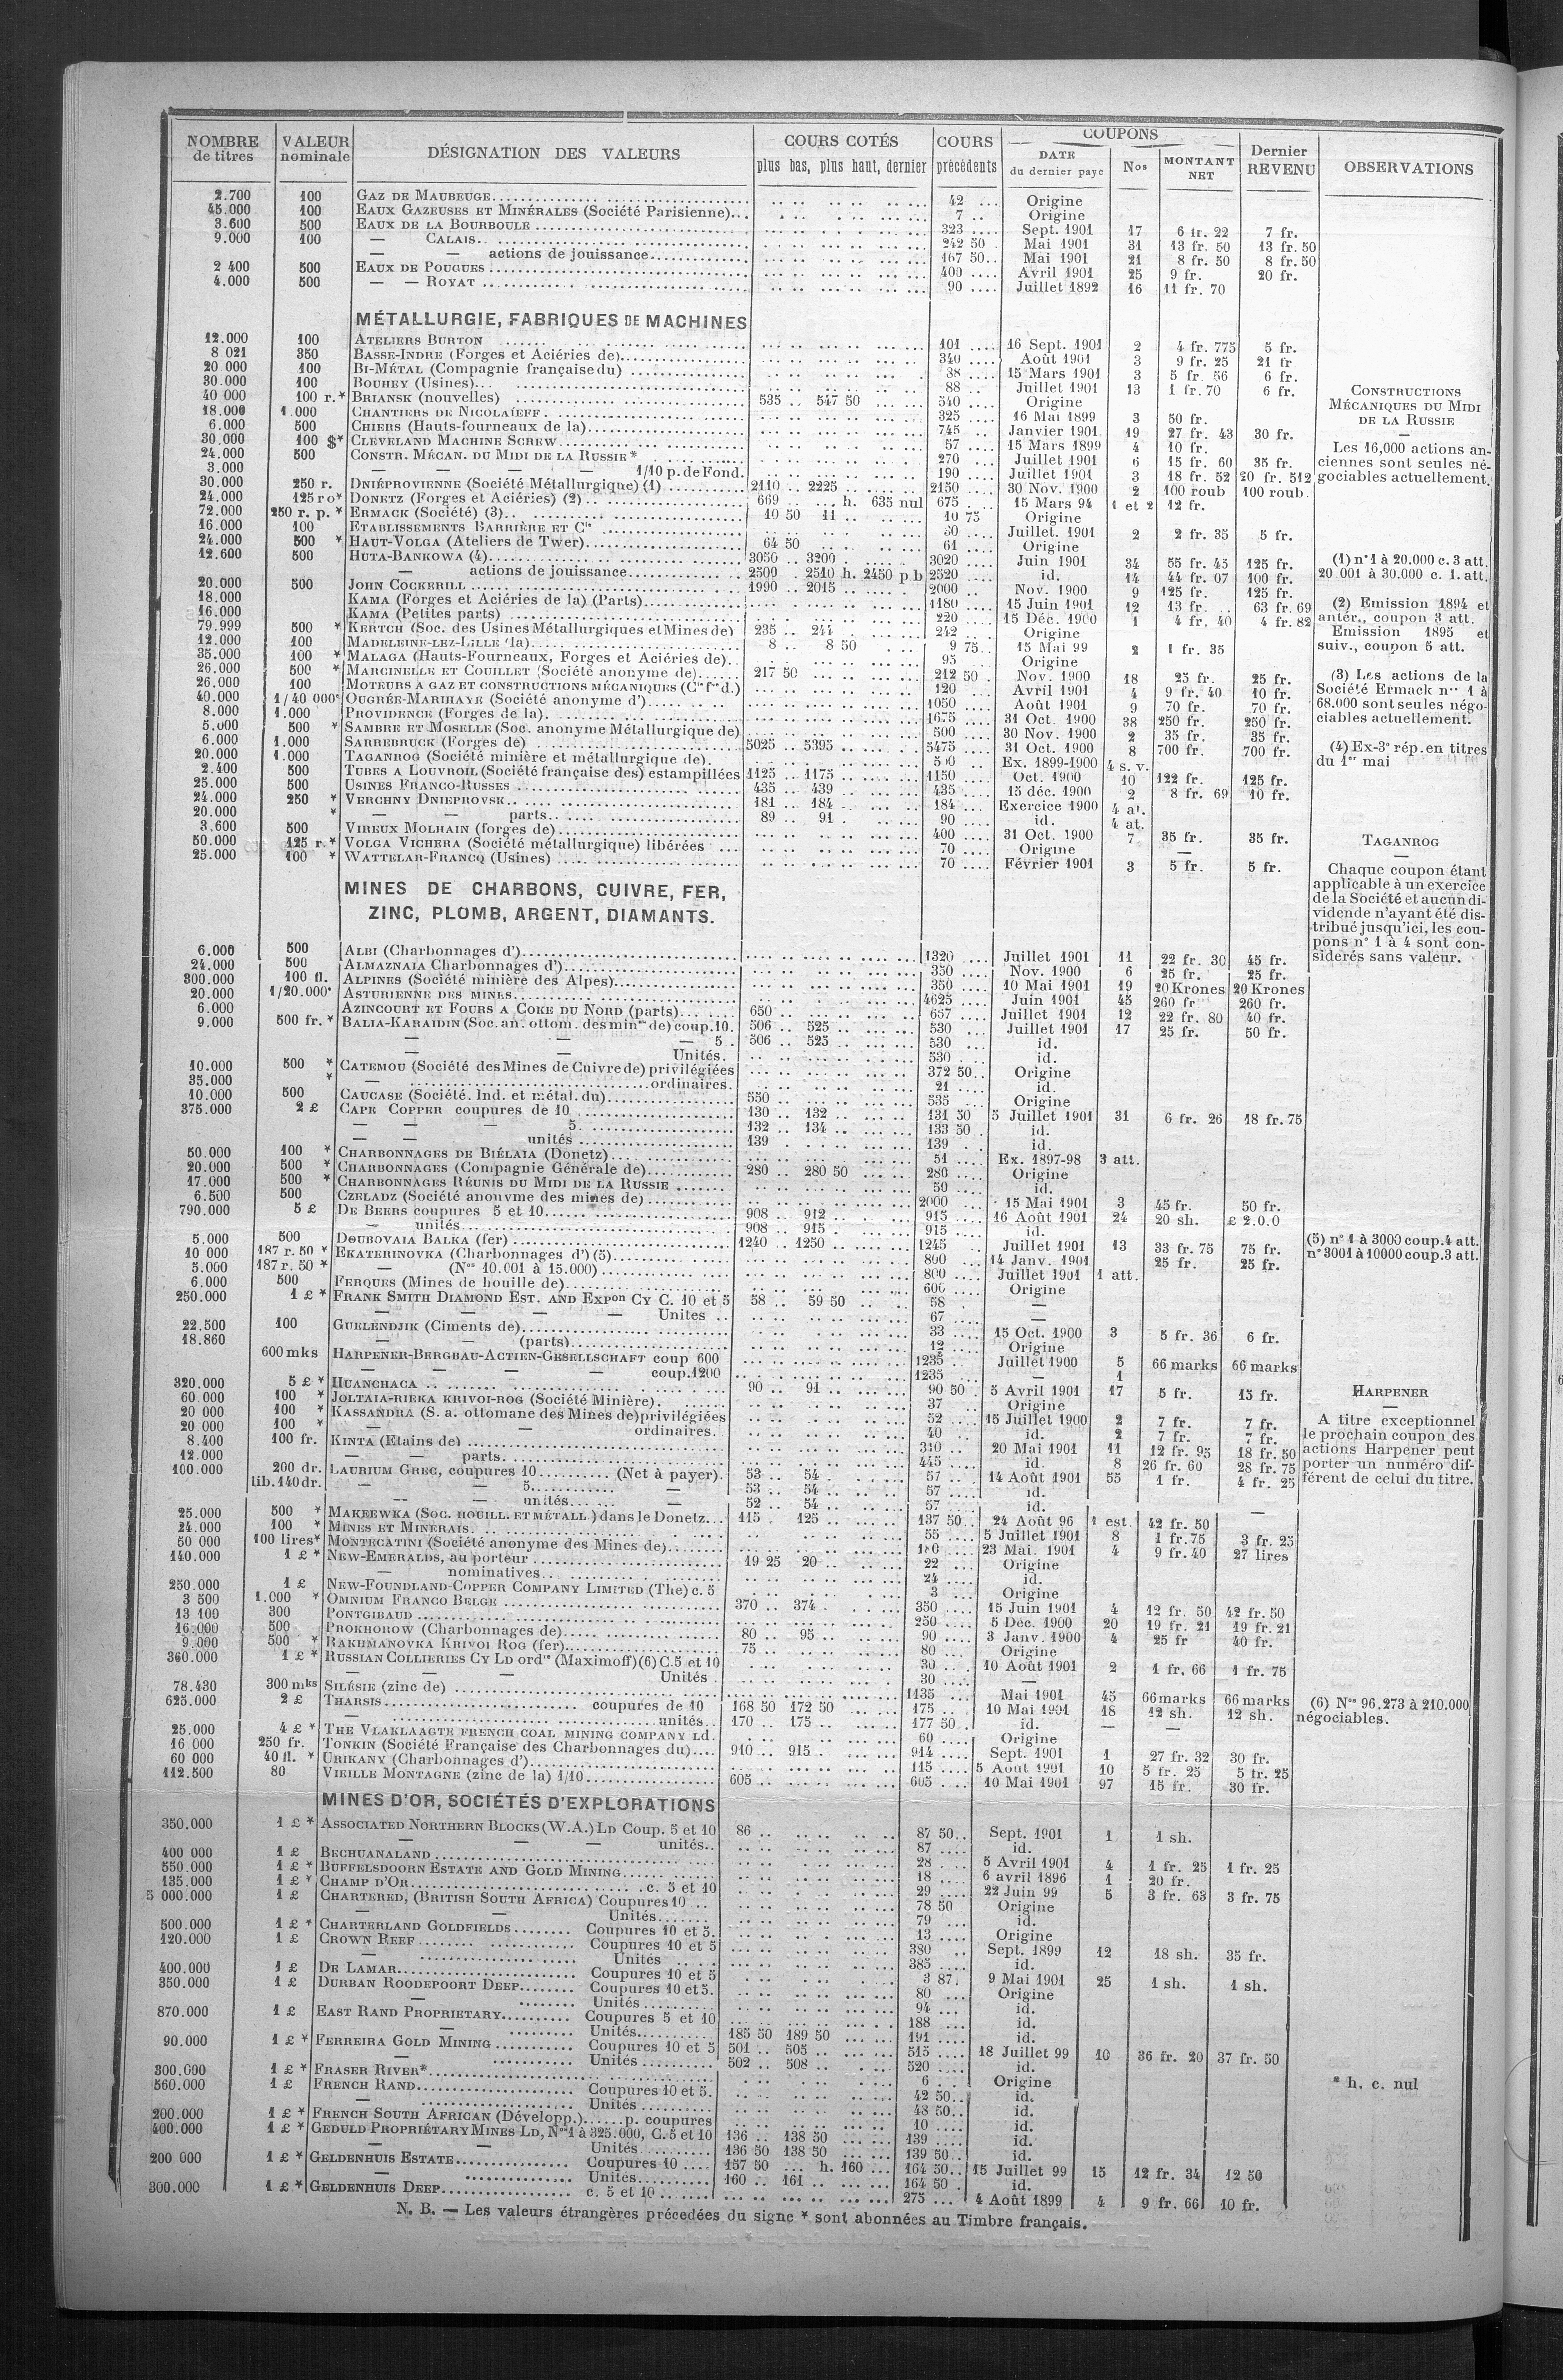 NOMBRE de titres | VALEUR nominale | DÉSIGNATION DES VALEURS | COURS COTÉS plus bas, plus haut, dernier | COURS précédents | COUPONS DATE du dernier paye | Nos | MONTANT NET | Dernier REVENU | OBSERVATIONS
2.700 | 100 | GAZ DE MAUBEUGE | 42 | Origine
45.000 | 100 | EAUX GAZEUSES ET MINÉRALES (Société Parisienne) | 7 | Origine
3.600 | 500 | EAUX DE LA BOURBOULE | 323 | Sept. 1901 | 17 | 6 fr. 22 | 7 fr.
9.000 | 100 | — CALAIS | 242 50 | Mai 1901 | 31 | 13 fr. 50 | 13 fr. 50
— — actions de jouissance | 167 50 | Mai 1901 | 21 | 8 fr. 50 | 8 fr. 50
2 400 | 500 | EAUX DE POUGUES | 400 | Avril 1901 | 25 | 9 fr. | 20 fr.
4.000 | 500 | — — ROYAT | 90 | Juillet 1892 | 16 | 11 fr. 70
MÉTALLURGIE, FABRIQUES DE MACHINES
12.000 | 100 | ATELIERS BURTON | 101 | 16 Sept. 1901 | 2 | 4 fr. 775 | 5 fr.
8 021 | 350 | BASSE-INDRE (Forges et Aciéries de) | 340 | Août 1901 | 3 | 9 fr. 25 | 21 fr
20 000 | 100 | BI-MÉTAL (Compagnie française du) | 38 | 15 Mars 1901 | 3 | 5 fr. 56 | 6 fr.
30.000 | 100 | BOUHEY (Usines) | 88 | Juillet 1901 | 13 | 1 fr. 70 | 6 fr.
40 000 | 100 r.* | BRIANSK (nouvelles) | 535 | 547 50 | 540 | Origine
18.000 | 1.000 | CHANTIERS DE NICOLAÏEFF | 325 | 16 Mai 1899 | 3 | 50 fr.
6.000 | 500 | CHIERS (Hauts-fourneaux de la) | 745 | Janvier 1901 | 19 | 27 fr. 43 | 30 fr.
30.000 | 100 $* | CLEVELAND MACHINE SCREW | 57 | 15 Mars 1899 | 4 | 10 fr.
24.000 | 500 | CONSTR. MÉCAN. DU MIDI DE LA RUSSIE* | 270 | Juillet 1901 | 6 | 15 fr. 60 | 35 fr.
3.000 | — — — — 1/10 p. de Fond. | 190 | Juillet 1901 | 3 | 18 fr. 52 | 20 fr. 512
30.000 | 250 r. | DNIÉPROVIENNE (Société Métallurgique) (1) | 2110 | 2225 | 2150 | 30 Nov. 1900 | 2 | 100 roub | 100 roub.
24.000 | 125 ro* | DONETZ (Forges et Aciéries) (2) | 669 | h. 635 nul | 675 | 15 Mars 94 | 1 et 2 | 12 fr.
72.000 | 250 r. p. * | ERMACK (Société) (3) | 10 50 | 11 | 10 75 | Origine
16.000 | 100 | ETABLISSEMENTS BARRIÈRE ET Cie | 30 | Juillet. 1901 | 2 | 2 fr. 35 | 5 fr.
24.000 | 500 * | HAUT-VOLGA (Ateliers de Twer) | 64 50 | 61 | Origine
12.600 | 500 | HUTA-BANKOWA (4) | 3050 | 3200 | 3020 | Juin 1901 | 34 | 55 fr. 45 | 125 fr.
— actions de jouissance | 2500 | 2510 h. 2450 p b | 2520 | id. | 14 | 44 fr. 07 | 100 fr.
20.000 | 500 | JOHN COCKERILL | 1990 | 2015 | 2000 | Nov. 1900 | 9 | 125 fr. | 125 fr.
18.000 | KAMA (Forges et Aciéries de la) (Parts) | 1180 | 15 Juin 1901 | 12 | 13 fr. | 63 fr. 69
16.000 | KAMA (Petites parts) | 220 | 15 Déc. 1900 | 1 | 4 fr. 40 | 4 fr. 82
79.999 | 500 * | KERTCH (Soc. des Usines Métallurgiques et Mines de) | 235 | 244 | 242 | Origine
12.000 | 100 | MADELEINE-LEZ-LILLE (la) | 8 | 8 50 | 9 75 | 15 Mai 99 | 2 | 1 fr. 35
35.000 | 100 * | MALAGA (Hauts-Fourneaux, Forges et Aciéries de) | 95 | Origine
26.000 | 500 * | MARCINELLE ET COUILLET (Société anonyme de) | 217 50 | 212 50 | Nov. 1900 | 18 | 25 fr. | 25 fr.
26.000 | 100 | MOTEURS A GAZ ET CONSTRUCTIONS MÉCANIQUES (Cie fse d.) | 120 | Avril 1901 | 4 | 9 fr. 40 | 10 fr.
40.000 | 1/40 000e | OUGRÉE-MARIHAYE (Société anonyme d') | 1050 | Août 1901 | 9 | 70 fr. | 70 fr.
8.000 | 1.000 | PROVIDENCE (Forges de la) | 1675 | 31 Oct. 1900 | 38 | 250 fr. | 250 fr.
5.000 | 500 * | SAMBRE ET MOSELLE (Soc. anonyme Métallurgique de) | 500 | 30 Nov. 1900 | 2 | 35 fr. | 35 fr.
6.000 | 1.000 | SARREBRUCK (Forges de) | 5025 | 5395 | 5475 | 31 Oct. 1900 | 8 | 700 fr. | 700 fr.
20.000 | 1.000 | TAGANROG (Société minière et métallurgique de) | Ex. 1899-1900 | 4 s. v.
2.400 | 500 | TUBES A LOUVROIL (Société française des) estampillées | 1125 | 1175 | 1150 | Oct. 1900 | 10 | 122 fr. | 125 fr.
25.000 | 500 | USINES FRANCO-RUSSES | 435 | 439 | 435 | 15 déc. 1900 | 2 | 8 fr. 69 | 10 fr.
24.000 | 250 * | VERCHNY DNIEPROVSK | 181 | 184 | 184 | Exercice 1900 | 4 at.
20.000 | * | — — parts | 89 | 91 | 90 | id. | 4 at.
3.600 | 500 | VIREUX MOLHAIN (forges de) | 400 | 31 Oct. 1900 | 7 | 35 fr. | 35 fr.
50.000 | 125 r.* | VOLGA VICHERA (Société métallurgique) libérées | 70 | Origine | —
25.000 | 100 * | WATTELAR-FRANCQ (Usines) | 70 | Février 1901 | 3 | 5 fr. | 5 fr.
MINES DE CHARBONS, CUIVRE, FER,
ZINC, PLOMB, ARGENT, DIAMANTS.
6.000 | 500 | ALBI (Charbonnages d') | 1320 | Juillet 1901 | 11 | 22 fr. 30 | 45 fr.
24.000 | 500 | ALMAZNAIA Charbonnages d') | 350 | Nov. 1900 | 6 | 25 fr. | 25 fr.
300.000 | 100 fl. | ALPINES (Société minière des Alpes) | 350 | 10 Mai 1901 | 19 | 20 Krones | 20 Krones
20.000 | 1/20.000e | ASTURIENNE DES MINES | 4625 | Juin 1901 | 45 | 260 fr | 260 fr.
6.000 | AZINCOURT ET FOURS A COKE DU NORD (parts) | 650 | 657 | Juillet 1901 | 12 | 22 fr. 80 | 40 fr.
9.000 | 500 fr. * | BALIA-KARAIDIN (Soc. an. ottom. des mines de) coup. 10. | 506 | 525 | 530 | Juillet 1901 | 17 | 25 fr. | 50 fr.
— — — 5 | 506 | 525 | 530 | id.
— — Unités. | 530 | id.
10.000 | 500 * | CATEMOU (Société des Mines de Cuivre de) privilégiées | 372 50 | Origine
35.000 | * | — ordinaires. | 21 | id.
10.000 | 500 | CAUCASE (Société. Ind. et métal. du) | 550 | 535 | Origine
375.000 | 2 £ | CAPE COPPER coupures de 10 | 130 | 132 | 131 50 | 5 Juillet 1901 | 31 | 6 fr. 26 | 18 fr. 75
— — 5 | 132 | 134 | 133 50 | id.
— — unités | 139 | 139 | id.
50.000 | 100 * | CHARBONNAGES DE BIÉLAIA (Donetz) | 51 | Ex. 1897-98 | 3 att.
20.000 | 500 * | CHARBONNAGES (Compagnie Générale de) | 280 | 280 50 | 280 | Origine
17.000 | 500 * | CHARBONNAGES RÉUNIS DU MIDI DE LA RUSSIE | 50 | id.
6.500 | 500 | CZELADZ (Société anonyme des mines de) | 2000 | 15 Mai 1901 | 3 | 45 fr. | 50 fr.
790.000 | 5 £ | DE BEERS coupures 5 et 10 | 908 | 912 | 915 | 16 Août 1901 | 24 | 20 sh. | £ 2.0.0
— unités | 908 | 915 | 915 | id.
5.000 | 500 | DOUBOVAIA BALKA (fer) | 1240 | 1250 | 1245 | Juillet 1901 | 13 | 33 fr. 75 | 75 fr.
10 000 | 187 r. 50 * | EKATERINOVKA (Charbonnages d') (5) | 800 | 14 Janv. 1901 | 25 fr. | 25 fr.
5.000 | 187 r. 50 * | — (Nos 10.001 à 15.000) | 800 | Juillet 1901 | 1 att.
6.000 | 500 | FERQUES (Mines de houille de) | 600 | Origine
250.000 | 1 £ * | FRANK SMITH DIAMOND EST. AND EXPon CY C. 10 et 5 | 58 | 59 50 | 58 | —
— — — — Unites | 67 | —
22.500 | 100 | GUELENDJIK (Ciments de) | 33 | 15 Oct. 1900 | 3 | 5 fr. 36 | 6 fr.
18.860 | — — (parts) | 12 | Origine
600 mks | HARPENER-BERGBAU-ACTIEN-GESELLSCHAFT coup 600 | 1235 | Juillet 1900 | 5 | 66 marks | 66 marks
— — — — coup. 1200 | 1235 | — | 1
320.000 | 5 £ * | HUANCHACA | 90 | 91 | 90 50 | 5 Avril 1901 | 17 | 5 fr. | 15 fr.
60.000 | 100 * | JOLTAIA-RIEKA KRIVOI-ROG (Société Minière) | 37 | Origine
20 000 | 100 * | KASSANDRA (S. a. ottomane des Mines de) privilégiées | 52 | 15 Juillet 1900 | 2 | 7 fr. | 7 fr.
20 000 | 100 * | — — ordinaires. | 40 | id. | 2 | 7 fr. | 7 fr.
8.400 | 100 fr. | KINTA (Etains de) | 310 | 20 Mai 1901 | 11 | 12 fr. 95 | 18 fr. 50
12.000 | — — parts | 445 | id. | 8 | 26 fr. 60 | 28 fr. 75
100.000 | 200 dr. | LAURIUM GREC, coupures 10 (Net à payer) | 53 | 54 | 57 | 14 Août 1901 | 55 | 1 fr. | 4 fr. 25
lib. 140 dr. | — — 5 — | 53 | 54 | 57 | id.
— — unités — | 52 | 54 | 57 | id. | —
25.000 | 500 * | MAKEEWKA (SOC. HOUILL. ET MÉTALL.) dans le Donetz | 115 | 125 | 137 50 | 24 Août 96 | 1 est. | 42 fr. 50
24.000 | 100 * | MINES ET MINERAIS | 55 | 5 Juillet 1901 | 8 | 1 fr. 75 | 3 fr. 25
50 000 | 100 lires* | MONTECATINI (Société anonyme des Mines de) | 23 Mai. 1901 | 4 | 9 fr. 40 | 27 lires
140.000 | 1 £ * | NEW-EMERALDS, au porteur | 19 25 | 20 | 22 | Origine
— nominatives | 24 | id.
250.000 | 1 £ | NEW-FOUNDLAND-COPPER COMPANY LIMITED (The) c. 5 | 3 | Origine
3 500 | 1.000 * | OMNIUM FRANCO BELGE | 370 | 374 | 350 | 15 Juin 1901 | 4 | 12 fr. 50 | 42 fr. 50
13 100 | 300 | PONTGIBAUD | 250 | 5 Dec. 1900 | 20 | 19 fr. 21 | 19 fr. 21
16.000 | 500 | PROKHOROW (Charbonnages de) | 80 | 95 | 90 | 3 Janv. 1900 | 4 | 25 fr | 40 fr.
9.000 | 500 * | RAKHMANOVKA KRIVOI ROG (fer) | 75 | 80 | Origine
360.000 | 1 £ * | RUSSIAN COLLIERIES CY LD ordres (Maximoff) (6) C. 5 et 10 | 30 | 10 Août 1901 | 2 | 1 fr. 66 | 1 fr. 75
— — — Unités | 30 | —
78.430 | 300 mks | SILÉSIE (zinc de) | 1135 | Mai 1901 | 45 | 66 marks | 66 marks
625.000 | 2 £ | THARSIS coupures de 10 | 168 50 | 172 50 | 175 | 10 Mai 1901 | 18 | 12 sh. | 12 sh.
— unités | 170 | 175 | 177 50 | id. | — | —
25.000 | 4 £ * | THE VLAKLAAGTE FRENCH COAL MINING COMPANY LD. | 60 | Origine
16 000 | 250 fr. | TONKIN (Société Française des Charbonnages du) | 910 | 915 | 914 | Sept. 1901 | 1 | 27 fr. 32 | 30 fr.
60 000 | 40 fl. * | URIKANY (Charbonnages d') | 115 | 5 Août 1901 | 10 | 5 fr. 25 | 5 fr. 25
112.500 | 80 | VIEILLE MONTAGNE (zinc de la) 1/10 | 605 | 605 | 10 Mai 1901 | 97 | 15 fr. | 30 fr.
MINES D'OR, SOCIÉTÉS D'EXPLORATIONS
350.000 | 1 £ * | ASSOCIATED NORTHERN BLOCKS (W.A.) LD Coup. 5 et 10 | 86 | 87 50 | Sept. 1901 | 1 | 1 sh.
— — — unités | 87 | id.
400 000 | 1 £ | BECHUANALAND | 28 | 5 Avril 1901 | 4 | 1 fr. 25 | 1 fr. 25
550.000 | 1 £ * | BUFFELSDOORN ESTATE AND GOLD MINING | 18 | 6 avril 1896 | 1 | 20 fr.
135.000 | 1 £ * | CHAMP D'OR c. 5 et 10 | 29 | 22 Juin 99 | 5 | 3 fr. 63 | 3 fr. 75
5 000.000 | 1 £ | CHARTERED, (BRITISH SOUTH AFRICA) Coupures 10 | 78 50 | Origine
— — Unités | 79 | id.
500.000 | 1 £ * | CHARTERLAND GOLDFIELDS Coupures 10 et 5. | 13 | Origine
120.000 | 1 £ | CROWN REEF Coupures 10 et 5 | 380 | Sept. 1899 | 12 | 18 sh. | 35 fr.
— Unités | 385 | id.
400.000 | 1 £ | DE LAMAR Coupures 10 et 5 | 3 87 | 9 Mai 1901 | 25 | 1 sh. | 1 sh.
350.000 | 1 £ | DURBAN ROODEPOORT DEEP Coupures 10 et 5. | 80 | Origine
— Unités | 94 | id.
870.000 | 1 £ | EAST RAND PROPRIETARY Coupures 5 et 10 | 188 | id.
— Unités | 185 50 | 189 50 | 191 | id.
90.000 | 1 £ * | FERREIRA GOLD MINING Coupures 10 et 5 | 501 | 505 | 515 | 18 Juillet 99 | 10 | 36 fr. 20 | 37 fr. 50
— Unités | 502 | 508 | 520 | id.
300.000 | 1 £ * | FRASER RIVER* | 6 | Origine
560.000 | 1 £ | FRENCH RAND Coupures 10 et 5. | 42 50 | id.
— Unités | 48 50 | id.
200.000 | 1 £ * | FRENCH SOUTH AFRICAN (Développ.) p. coupures | 10 | id.
400.000 | 1 £ * | GEDULD PROPRIÉTARY MINES LD, Nos 1 à 325.000, C. 5 et 10 | 136 | 138 50 | 139 | id.
— — Unités | 136 50 | 138 50 | 139 50 | id.
200 000 | 1 £ * | GELDENHUIS ESTATE Coupures 10 | 157 50 | h. 160 | 164 50 | 15 Juillet 99 | 15 | 12 fr. 34 | 12 50
— Unités | 160 | 161 | 164 50 | id.
300.000 | 1 £ * | GELDENHUIS DEEP c. 5 et 10 | 275 | 4 Août 1899 | 4 | 9 fr. 66 | 10 fr.
N. B. — Les valeurs étrangères précedées du signe * sont abonnées au Timbre français.
CONSTRUCTIONS
MÉCANIQUES DU MIDI
DE LA RUSSIE
—
Les 16,000 actions an-
ciennes sont seules né-
gociables actuellement.
(1) n° 1 à 20.000 c. 3 att.
20.001 à 30.000 c. 1. att.
(2) Emission 1894 et
antér., coupon 3 att.
Emission 1895 et
suiv., coupon 5 att.
(3) Les actions de la
Société Ermack nos 1 à
68.000 sont seules négo-
ciables actuellement.
(4) Ex-3e rép. en titres
du 1er mai
TAGANROG
—
Chaque coupon étant
applicable à un exercice
de la Société et aucun di-
vidende n'ayant été dis-
tribué jusqu'ici, les cou-
pons n° 1 à 4 sont con-
sidérés sans valeur.
(5) n° 1 à 3000 coup. 4 att.
n° 3001 à 10000 coup. 3 att.
HARPENER
—
A titre exceptionnel
le prochain coupon des
actions Harpener peut
porter un numéro dif-
férent de celui du titre.
(6) Nos 96.273 à 210.000
négociables.
* h. c. nul